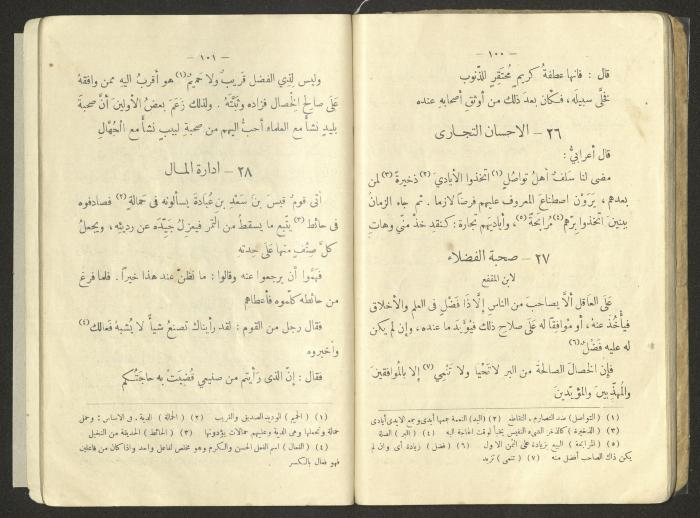 — ١٠٠ —
قال : فانها عطفةُ كريمٍ مُحتَقِرٍ للذّنوب
فخلَّى سبيلَه، فكانَ بعدَ ذلك من أوثقِ أصحابِهِ عنده
٢٦ – الاحسان التجارى
قال أعرابىٌّ :
مضى لنا سَلَفٌ أهلُ تواصُلٍ (١) اتخذوا الأيادىَ (٢) ذخيرةً (٣) لمن
بعدهم ، يرَوْن اصطناعَ المعروف عليهم فرضًا لازما . ثم جاء الزمانُ
ببنينَ اتخذوا بِرَّهم (٤) مُرابَحَةً (٥)، وأياديَهم تجارة : كنقد خذ منّى وهاتِ
٢٧ – صحبة الفضلاء
لابن المقفع
عَلَى العاقلِ ألّا يصاحبَ من الناس إلاّ ذا فَضْلٍ فى العلم والأخلاق
فيأخُذَ عنهُ ، أو موافِقًا له عَلَى صلاحِ ذلك فيؤيّدَ ما عنده، وإن لم يكن
له عليه فَضْلٌ (٦)
فإن الخصالَ الصالحةَ من البر لا تَحْيَا ولا تَنْمِى (٧) إلا بالموافقين
والمُهذّبينَ والمؤيّدين
(١) (التواصل) ضد التصارم ، التقاطع (٢) (اليد) النعمة جمعها أيدى وجمع الايدى أيادى
(٣) (الذخيرة) كالذخر الشىء النفيس يخبأ لوقت الحاجة اليه (٤) (البر) الصلة
(٥) (المرابحة) البيع بزيادة على الثمن الاول (٦) (فضل) زيادة أى وان لم
يكن ذاك الصاحب أفضل منه (٧) (تنمى) تزيد
— ١٠١ —
وليس لِذِي الفضل قَريبٌ ولا حَميمٌ (١) هو أقربُ اليهِ ممن وافقهُ
عَلَى صالحِ الخصالِ فزاده وثبّتَهُ . ولذلك زعَمَ بعضُ الأولينَ أنَّ صحبةَ
بليدٍ نشأ مع العلماء أحبُّ اليهم من صحبة لبيبٍ نشأ مع الجُهَّالِ
٢٨ – ادارة المال
أتى قومٌ قيسَ بنَ سَعْدِ بنِ عُبادَةَ يسألونه فى حَمالةٍ (٢) فصادفوه
فى حائط (٣) يتّبع ما يسقطُ من الثمرِ فيعزِلُ جيّدَه عن رديئِه ، ويجعلُ
كلَّ صِنْفٍ منها عَلَى حِدته
فهمُّوا أن يرجعوا عنه وقالوا : ما نظنّ عند هذا خيرًا . فلما فرغ
من حائطه كلّموه فأعطاهم
فقال رجل من القوم : لقد رأيناك تصنعُ شيأً لا يُشبه فَعالك (٤)
وأخبروه
فقال : إنّ الذى رأيتم من صنيعى قُضِيَتْ به حاجَتُكم
(١) (الحميم) الوديد الصديق والقريب (٢) (الحمالة) الدية . فى الاساس : وحمل
حمالة وتحملها وهى الدية وعليهم حمالات يؤدونها (٣) (الحائط) الحديقة من النخيل
(٤) (الفعال) اسم الفعل الحسن والكرم وهو مختص لفاعل واحد واذا كان من فاعلين
فهو فعال بالكسر